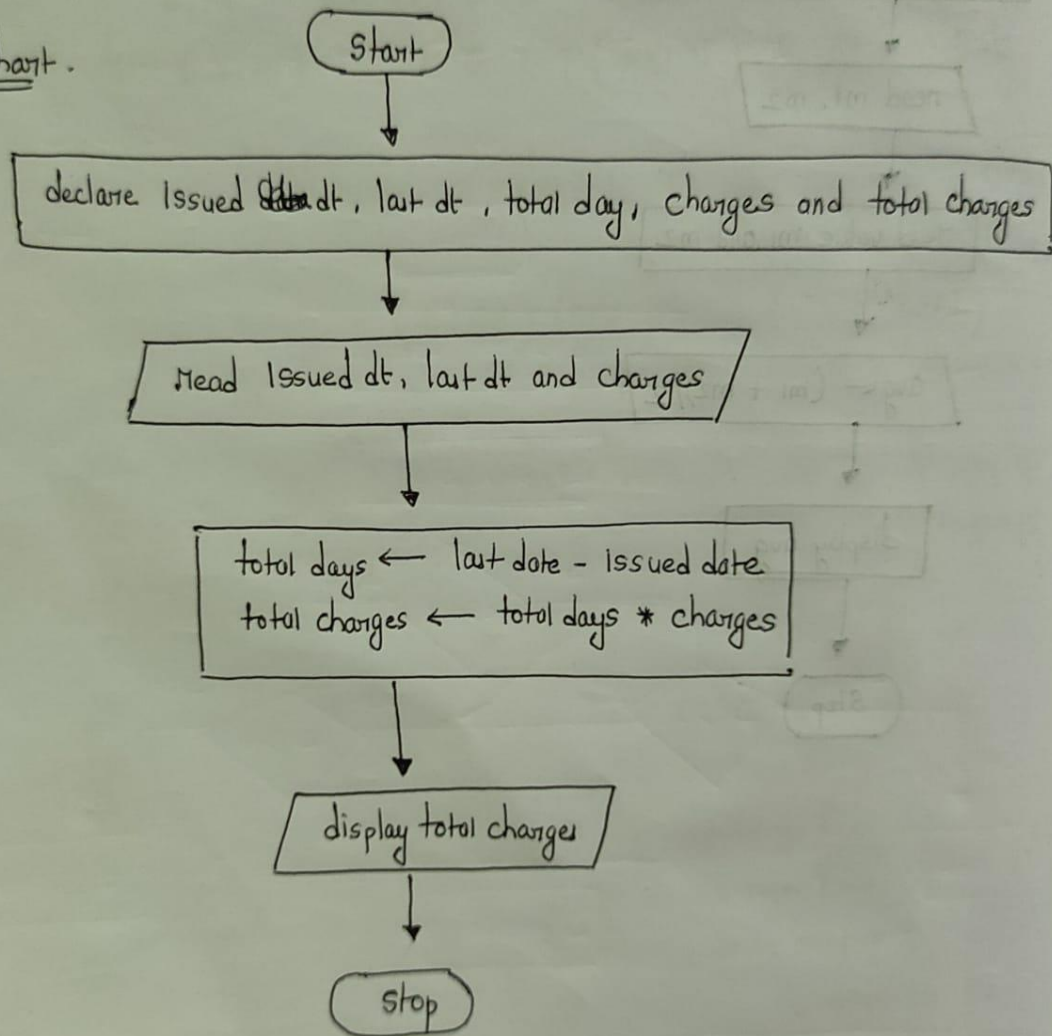 Start
declare Issued dt, last dt, total day, charges and total charges
read Issued dt, last dt and charges
total days ← last date - issued date
total charges ← total days * charges
display total charges
Stop